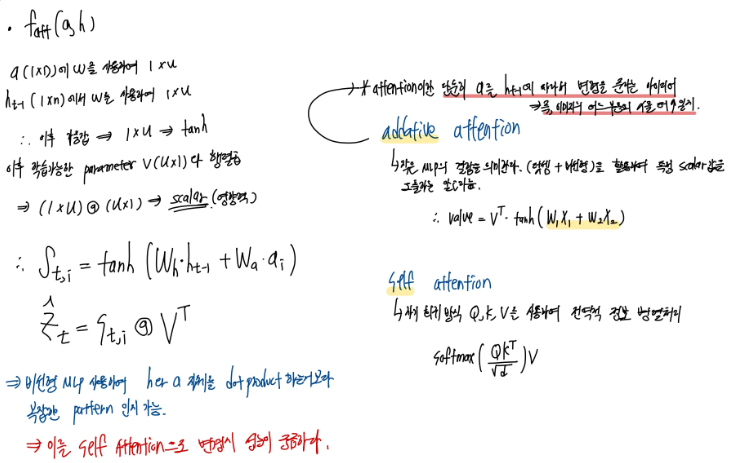 • f_att(a, h)
a (1×D)에 W을 사용하여 1×u
h_{t-1} (1×n)에서 W을 사용하여 1×u
∴ 이후 ⇒ 1×u → tanh
이후 학습가능한 parameter V(u×1)와 행렬곱
⇒ (1×u) @ (u×1) → scalar (영향력)
∴ S_{t,i} = tanh (W_h·h_{t-1} + W_a·a_i)
ẑ_t = S_{t,i} @ V^T
⇒ 비선형 MLP 사용하여 h와 a 자체를 dot product 하는거보다
복잡한 pattern 인지 가능.
⇒ 이를 Self Attention으로 변경시 성능이 궁금하다.
→ * attention이란 단순히 a를 h_{t-1}에 따라서 변형을 준다는 아이디어
⇒ 즉, 이미지의 어느 부분의 지
addative attention
↳ 작은 MLP의 결합을 의미한다. (덧셈 + 비선형)을 활용하여 특정 scalar값을
∴ value = V^T · tanh (W_1X_1 + W_2X_2)
self attention
↳ 자기 회귀 방식 Q, K, V을 사용하여 전역적 정보 병렬처리
softmax (QK^T / √d) V